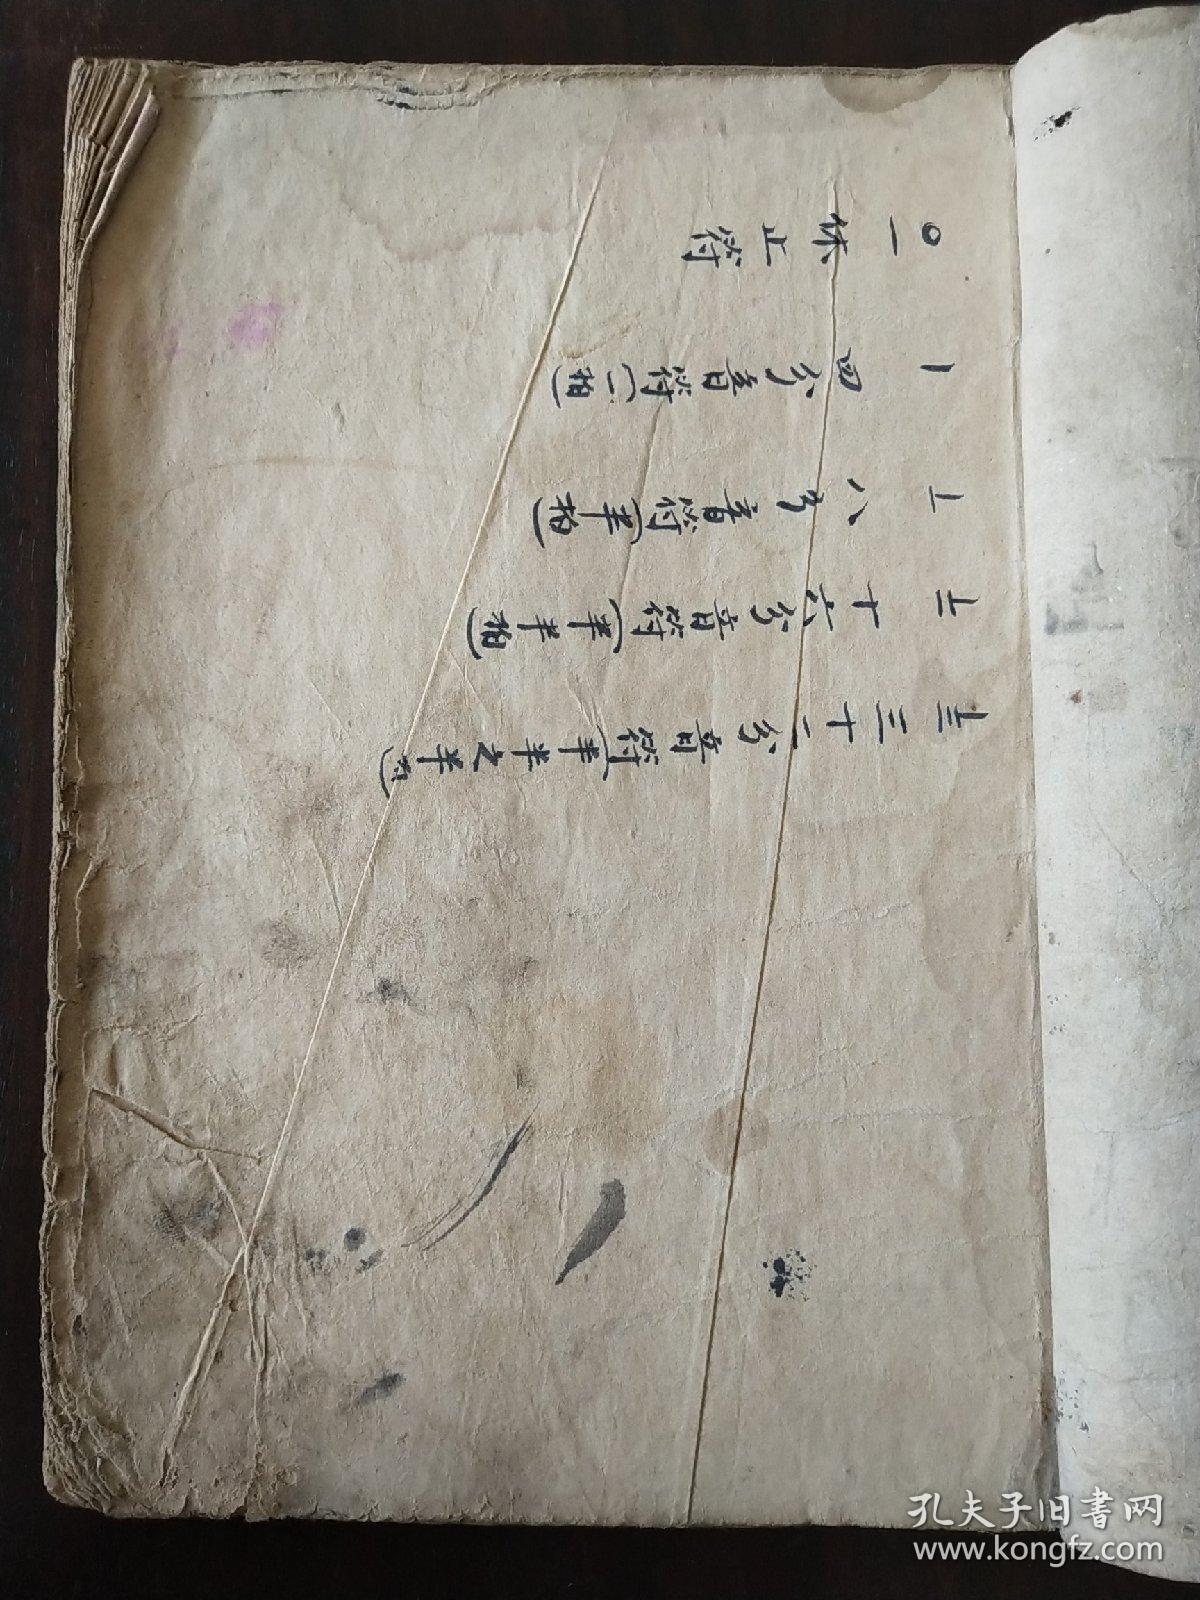 ○一休止符
1 四分音符(一拍)
1 八分音符(半拍)
1 十六分音符(半半拍)
1 三十二分音符(半半之半)
孔夫子旧书网
www.kongfz.com